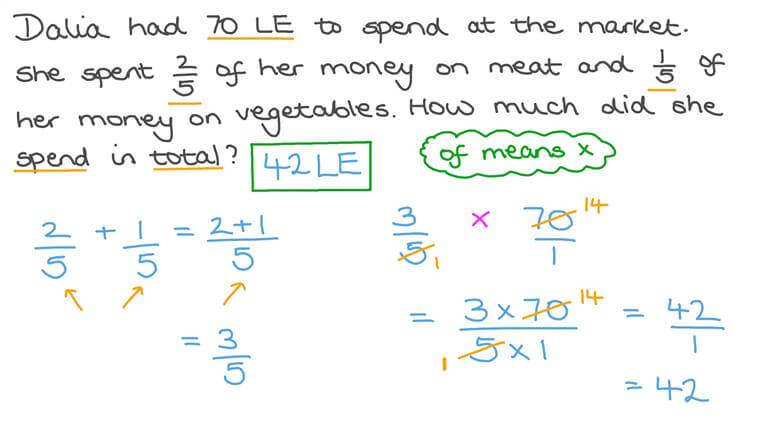 Dalia had 70 LE to spend at the market.
She spent 2/5 of her money on meat and 1/5 of
her money on vegetables. How much did she
spend in total? 42 LE
of means ×
2/5 + 1/5 = 2+1/5
= 3/5
3/5 1 × 70/1 14
= 3 × 70 14 / 1 5 × 1 = 42/1
= 42